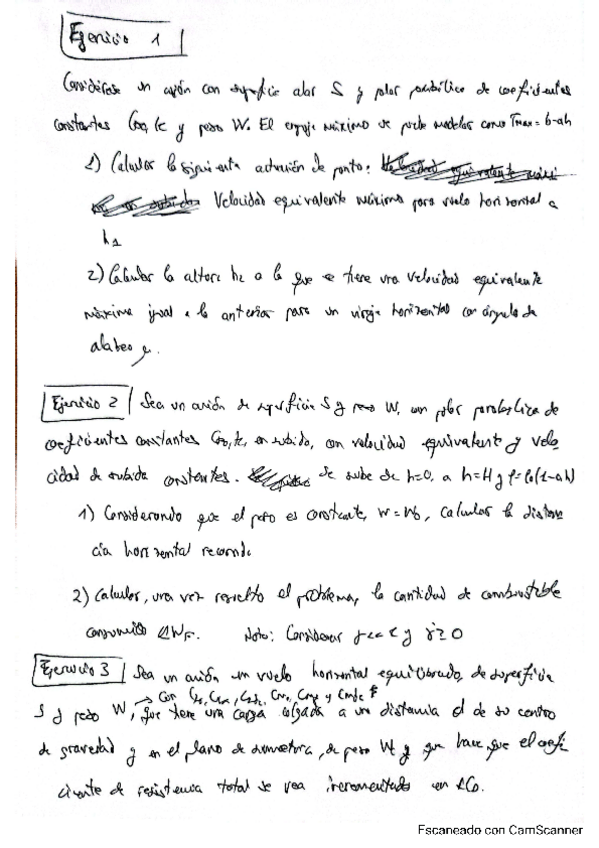 Ejercicio 1
Considérese un avión con superficie alar S y polar parabólica de coeficientes
constantes CD0, k y peso W. El empuje máximo se puede modelar como Tmax = b-ah
1) Calcular la siguiente actuación de punto:
Velocidad equivalente máxima para vuelo horizontal a
h1
2) Calcular la altura h2 a la que se tiene una velocidad equivalente
máxima igual a la anterior para un viraje horizontal con ángulo de
alabeo μ.
Ejercicio 2 Sea un avión de superficie S y peso W, con polar parabólica de
coeficientes constantes CD0, k, en subida, con velocidad equivalente y velo
cidad de subida constantes. Se sube de h=0, a h=H y ρ=ρ0(1-ah)
1) Considerando que el peso es constante, W=W0, calcular la distan
cia horizontal recorrida
2) Calcular, una vez resuelto el problema, la cantidad de combustible
consumido ΔWF. Nota: Considerar γ<<1 y γ̇≃0
Ejercicio 3 Sea un avión en vuelo horizontal equilibrado, de superficie
S y peso W, que tiene una carga colgada a una distancia d de su centro
de gravedad y en el plano de simetría, de peso Wt y que hace que el coefi
ciente de resistencia total se vea incrementado en ΔCD.
Escaneado con CamScanner